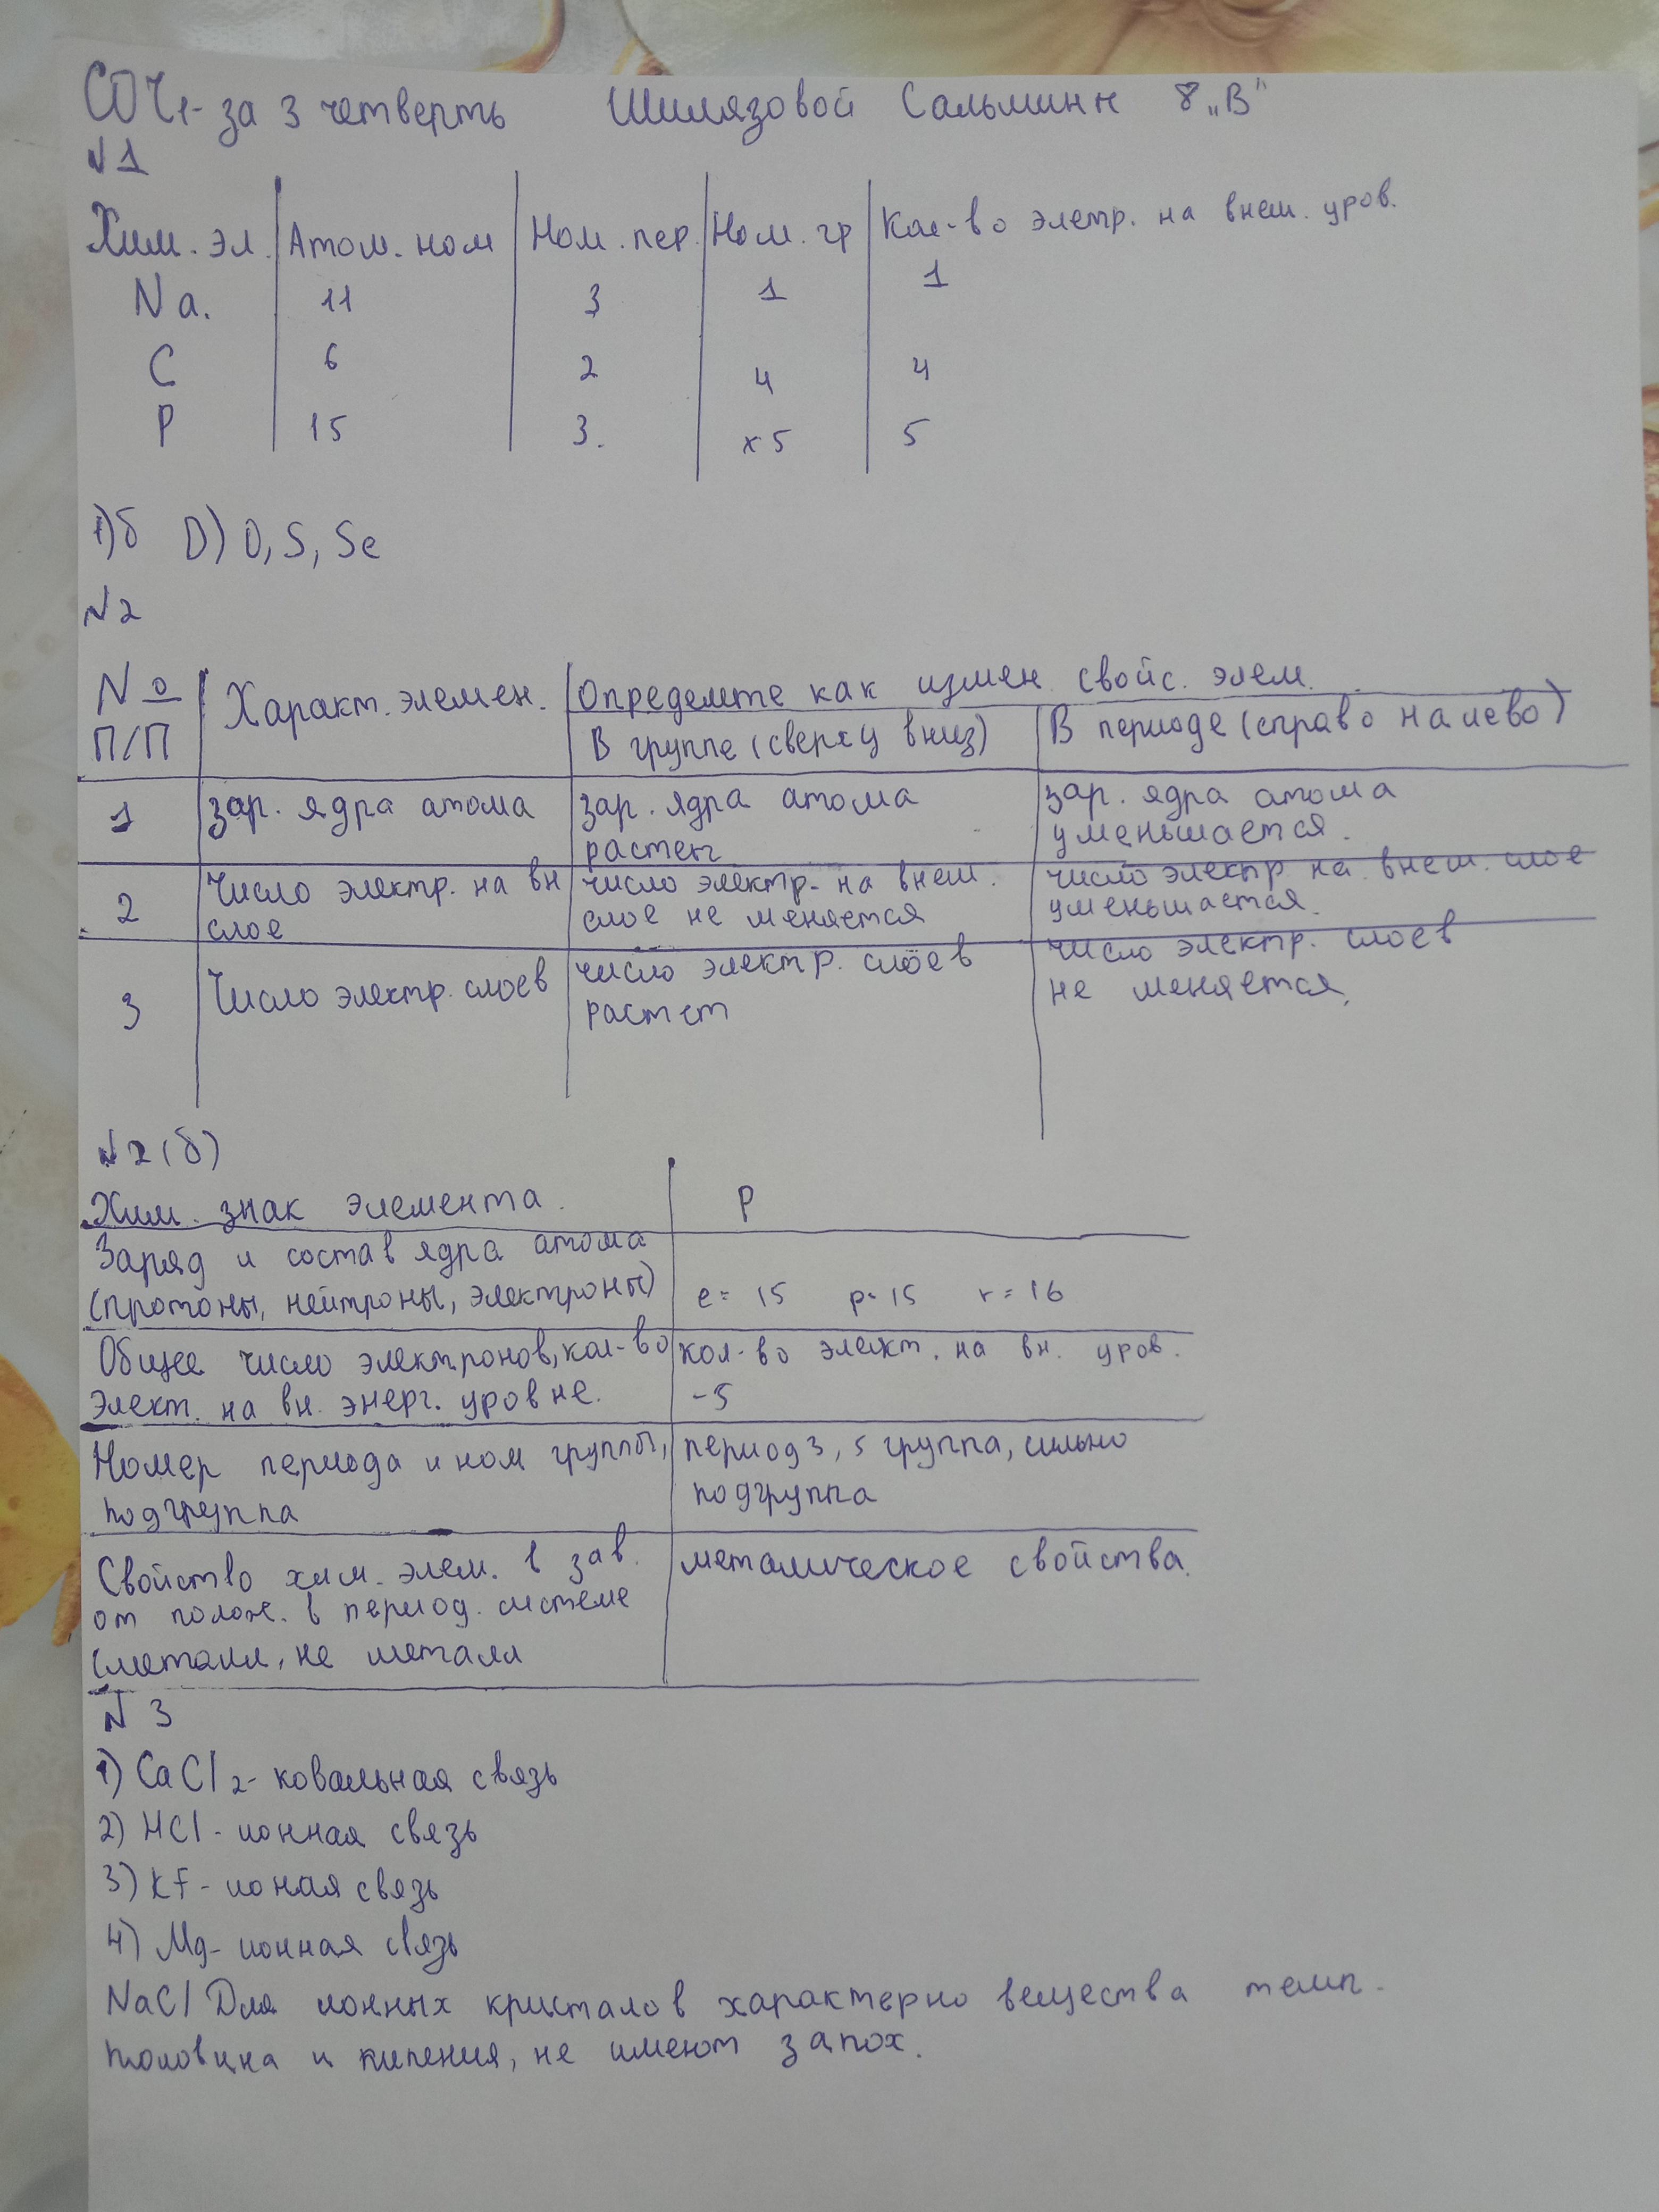 СОЧ - за 3 четверть Шилязовой Сальминн 8 „В"
N 1
Хим. эл. Атом. ном Ном. пер. Ном. гр Кол-во элетр. на внеш. уров.
Na. 11 3 1 1
C 6 2 4 4
P 15 3. 5 5
1)б D) O, S, Se
N2
№ П/П Характ. элемен. Определите как измен. свойс. элем.
В группе (сверху вниз) В периоде (справо налево)
1 зар. ядра атома зар. ядра атома растет зар. ядра атома уменьшается.
2 Число электр. на вн слое число электр. на внеш. слое не меняется число электр на внеш. слое уменьшается.
3 Число электр. слоев число электр. слоев растет число электр. слоев не меняется.
N2 (б)
Хим. знак элемента. P
Заряд и состав ядра атома
(протоны, нейтроны, электроны) e = 15 p = 15 r = 16
Общее число электронов, кол-во кол-во элект. на вн. уров.
элект. на вн. энерг. уровне. -5
Номер периода и ном группы, период 3, 5 группа, сильно
подгруппа подгруппа
Свойство хим. элем. в зав. металическое свойства.
от полож. в период. системе
(металл, не металл
N 3
1) CaCl2 - ковальная связь
2) HCl - ионная связь
3) KF - ионая связь
4) Mg - ионная связь
NaCl Для ионных кристалов характерно вещества темп.
и кипения, не имеют запох.